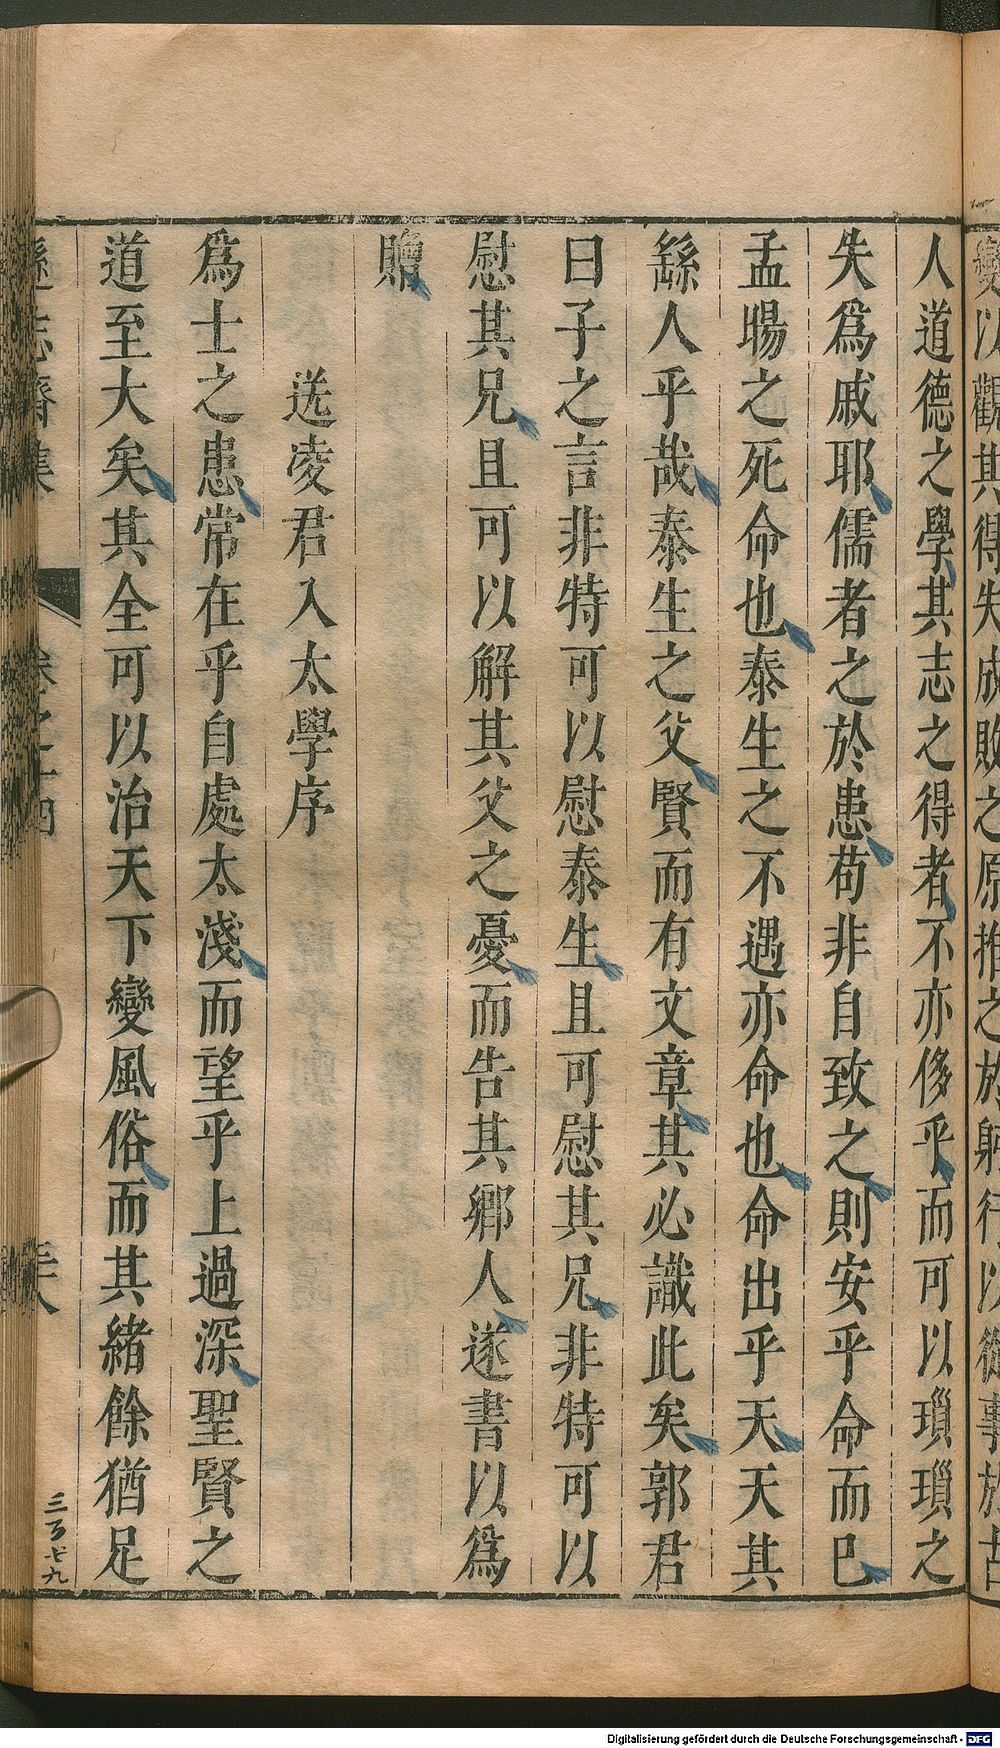 變以觀其得失成敗之原推之於躬行以從事於古
人道德之學其志之得者不亦侈乎而可以瑣瑣之
失爲戚耶儒者之於患苟非自致之則安乎命而已
孟暘之死命也泰生之不遇亦命也命出乎天天其
繇人乎哉泰生之父賢而有文章其必識此矣郭君
曰子之言非特可以慰泰生且可慰其兄非特可以
慰其兄且可以解其父之憂而告其鄉人遂書以爲
贈
送凌君入太學序
爲士之患常在乎自處太淺而望乎上過深聖賢之
道至大矣其全可以治天下變風俗而其緒餘猶足
遜志齋集 卷之十四 三十八
三百七九
Digitalisierung gefördert durch die Deutsche Forschungsgemeinschaft - DFG